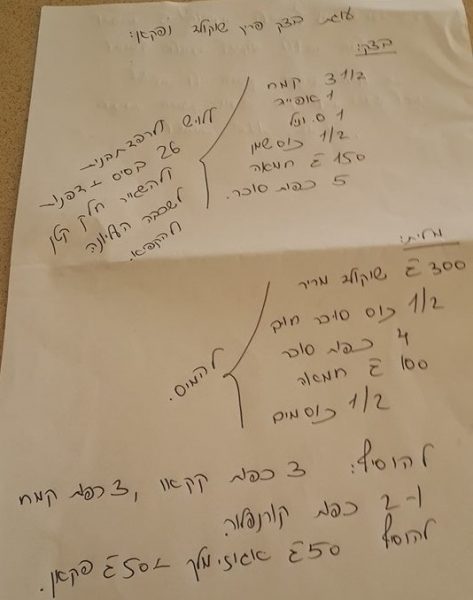 עוגת בצק פריך שוקולד ופקאן:
בצק:
3 1/2 קמח
1 אופייה
1 ס. וניל
1/2 כוס שמן
150 ג חמאה
5 כפות סוכר.
ללוש ולרפד תבנית
26 בסיס + דפנות
ולהשאיר חלק קטן
לשכבה העליונה
ולהקפיא.
מלית:
300 ג שוקולד מריר
1/2 כוס סוכר חום
4 כפות סוכר
100 ג חמאה
1/2 כוס מים
להמיס.
להוסיף: 3 כפות קקאו, 3 כפות קמח
ו-2 כפות קורנפלור.
להוסיף 50 ג אגוזי מלך + 50 ג פקאן.